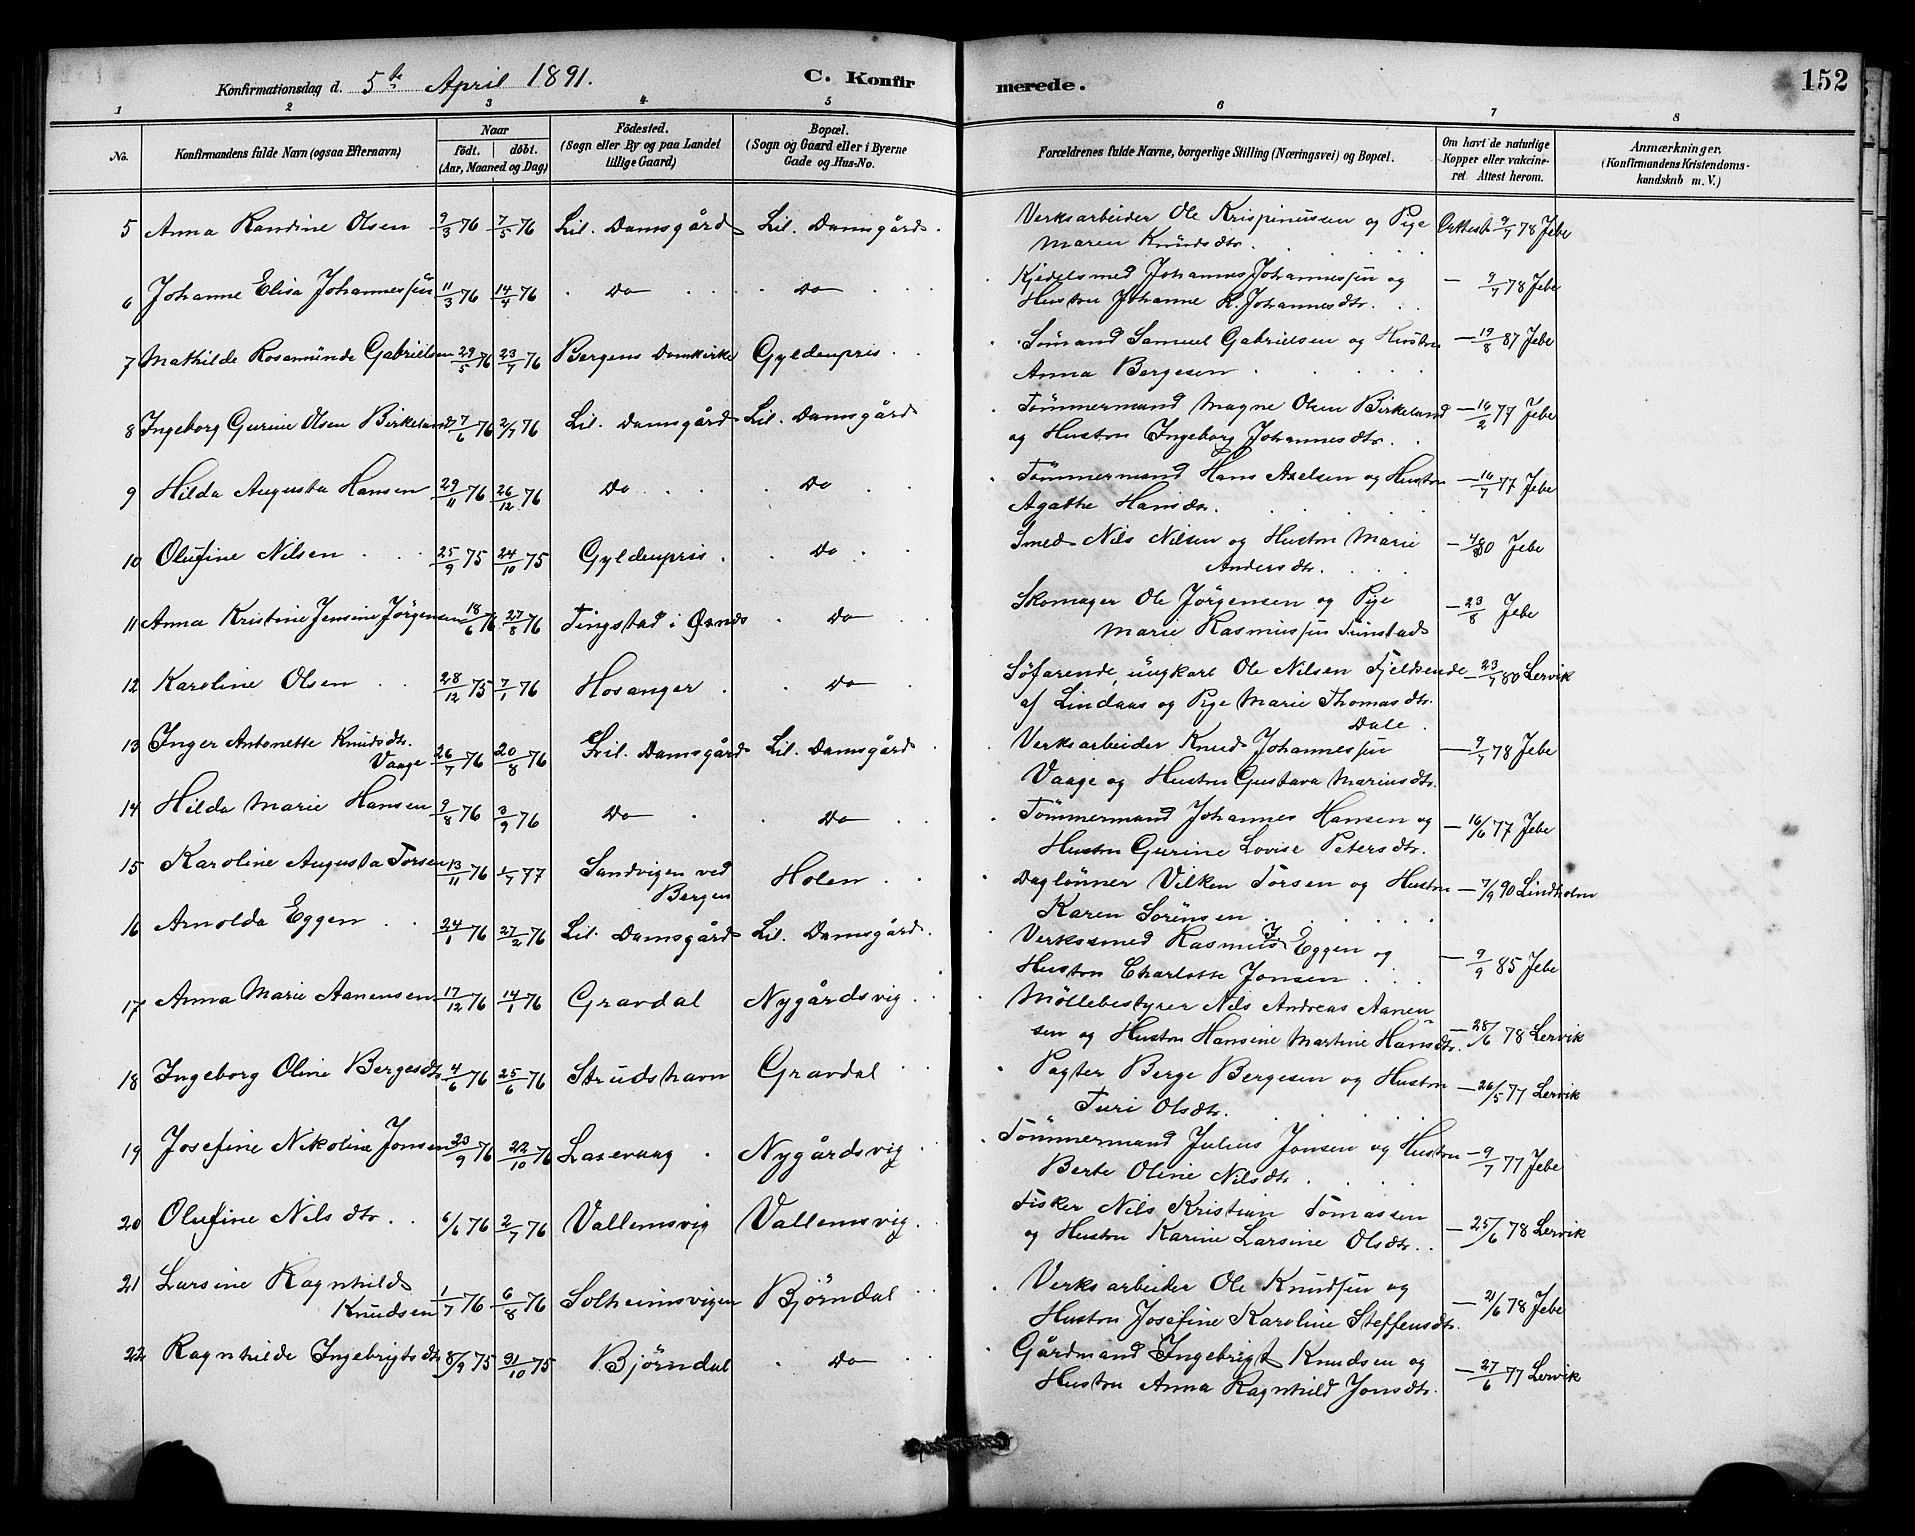 Konfirmationsdag d. 5te April 1891.
C. Konfirmerede.
152
1 2 3 4 5 6 7 8
No. Konfirmandens fulde Navn (ogsaa Efternavn) Naar födt. döbt. (Aar, Maaned og Dag) Födested. (Sogn eller By og paa Landet tillige Gaard) Bopæl. (Sogn og Gaard eller i Byerne Gade og Hus-No. Forældrenes fulde Navne, borgerlige Stilling (Næringsvei) og Bopæl. Om havt de naturlige Kopper eller vakcineret. Attest herom. Anmærkninger. (Konfirmandens Kristendomskundskab m. V.)
5 Anna Randine Olsen 9/3 76 7/5 76 Lil. Damsgård Lil. Damsgård. Verksarbeider Ole Krispinussen og Pige Attest 9/7 78 Jebe
Maren Knudsdtr.
6 Johanne Elisa Johannessen 11/3 76 14/4 76 Do Do Kjedelsmed Johannes Johannessen og — 9/7 78 Jebe
Hustru Johanne K. Johannesdtr.
7 Mathilde Rosamunde Gabrielsen 29/5 76 23/7 76 Bergens Domkirke Gyldenpris Sømand Samuel Gabrielsen og Hustru — 19/8 87 Jebe
Anna Bergesen
8 Ingeborg Gurine Olsen Birkeland 7/6 76 2/7 76 Lil. Damsgård Lil. Damsgård Tømmermand Magne Olsen Birkeland — 16/2 77 Jebe
og Hustru Ingeborg Johannesdtr.
9 Hilda Augusta Hansen 29/11 76 26/12 76 Do Do Tømmermand Hans Axelsen og Hustru — 16/7 77 Jebe
Agathe Hansdtr.
10 Olufine Nilsen 25/9 75 24/10 75 Gyldenpris Do Smed Nils Nilsen og Hustru Marie — 80 Jebe
Andersdtr.
11 Anna Kristine Jensine Jörgensen 18/6 76 27/8 76 Tingstad i Do Skomager Ole Jörgensen og Pige — 23/8 Jebe
Marie Rasmussen Tunstad
12 Karoline Olsen 28/12 75 7/1 76 Hosanger Do Söfarende, ungkarl Ole Nilsen Fjeldsende — 23/7 80 Lervik
af Lindaas og Pige Marie Thomasdtr.
Dale
13 Inger Antonette Knudsdtr. Vaage 26/7 76 20/8 76 Lil. Damsgård Lil. Damsgård Verksarbeider Knud Johannessen — 9/7 78 Jebe
Vaage og Hustru Gustava Mariusdtr.
14 Hilda Marie Hansen 9/8 76 3/9 76 Do Do Tömmermand Johannes Hansen og — 16/6 77 Jebe
Hustru Gurine Lovise Petersdtr.
15 Karoline Augusta Torsen 13/11 76 1/7 77 Sandvigen ved Bergen Holen Daglönner Vilken Torsen og Hustru — 7/9 90 Lindholm
Karen Sörensen
16 Arnolda Eggen 24/1 76 27/2 76 Lil. Damsgård Lil. Damsgård. Verkssmed Rasmus J. Eggen og — 9/9 85 Jebe
Hustru Charlotte Jonsen
17 Anna Marie Aanensen 17/12 76 14/1 76 Gravdal Nygårdsvig Möllebestyrer Nils Andreas Aanen-
sen og Hustru Hansine Martine Hansdtr. — 28/6 78 Lervik
18 Ingeborg Oline Bergesdtr 4/6 76 25/6 76 Strudshavn Gravdal Pagter Berge Bergesen og Hustru — 26/5 77 Lervik
Turi Olsdtr.
19 Josefine Nikoline Jonsen 23/9 76 22/10 76 Laxevaag Nygårdsvig Tömmermand Julius Jonsen og Hustru — 9/7 77 Jebe
Berte Oline Nilsdtr.
20 Olufine Nilsdtr. 6/6 76 2/7 76 Vallemsvig Vallemsvig Fisker Nils Kristian Tomassen
og Hustru Karine Larsine Olsdtr. — 25/6 78 Lervik
21 Larsine Ragnhild Knudsen 1/7 76 6/8 76 Solheimsvigen Björndal Verksarbeider Ole Knudsen og — 21/6 78 Jebe
Hustru Josefine Karoline Steffensdtr.
22 Ragnhilde Ingebrigtsdtr 8/9 75 31/10 75 Björndal Do Gårdmand Ingebrigt Knudsen og — 27/6 77 Lervik
Hustru Anna Ragnhild Jonsdtr.